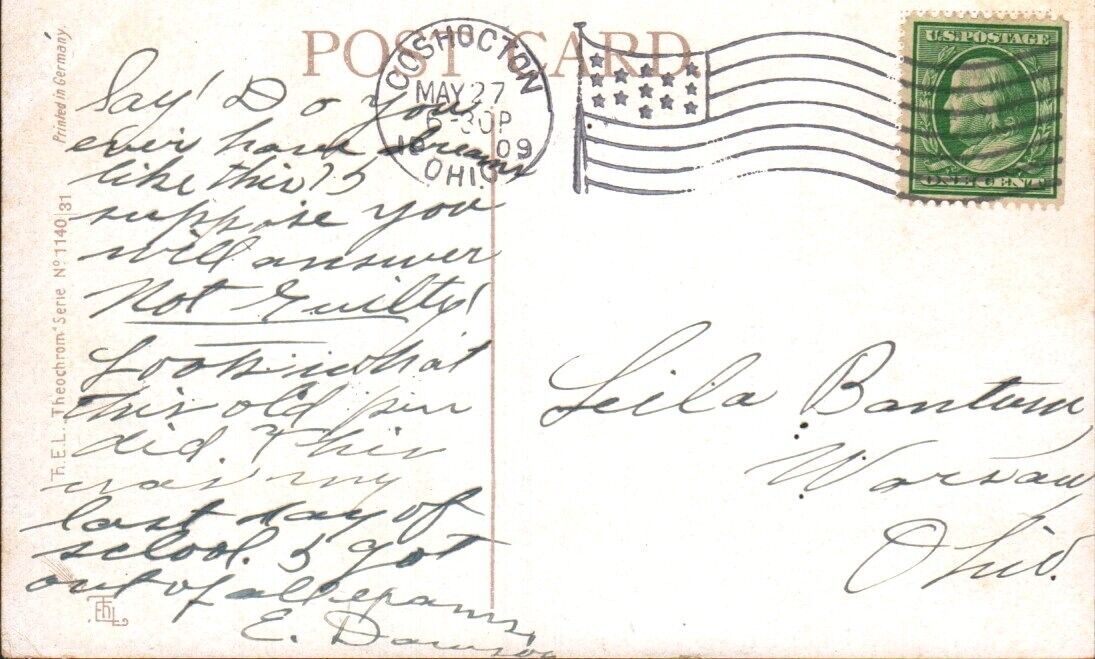 POST CARD
COSHOCTON
MAY 27
6-30P
1909
OHIO
U.S. POSTAGE
ONE CENT
Printed in Germany
Th. E. L. „Theochrom" Serie No 1140|31
Say! Do you
ever have dreams
like this? I
suppose you
will answer
Not Guilty!
Look what
this old pen
did. This
was my
last day of
school. I got
out of all exams.
E. Dawson
Leila Bantum
Warsaw
Ohio.
ThEL